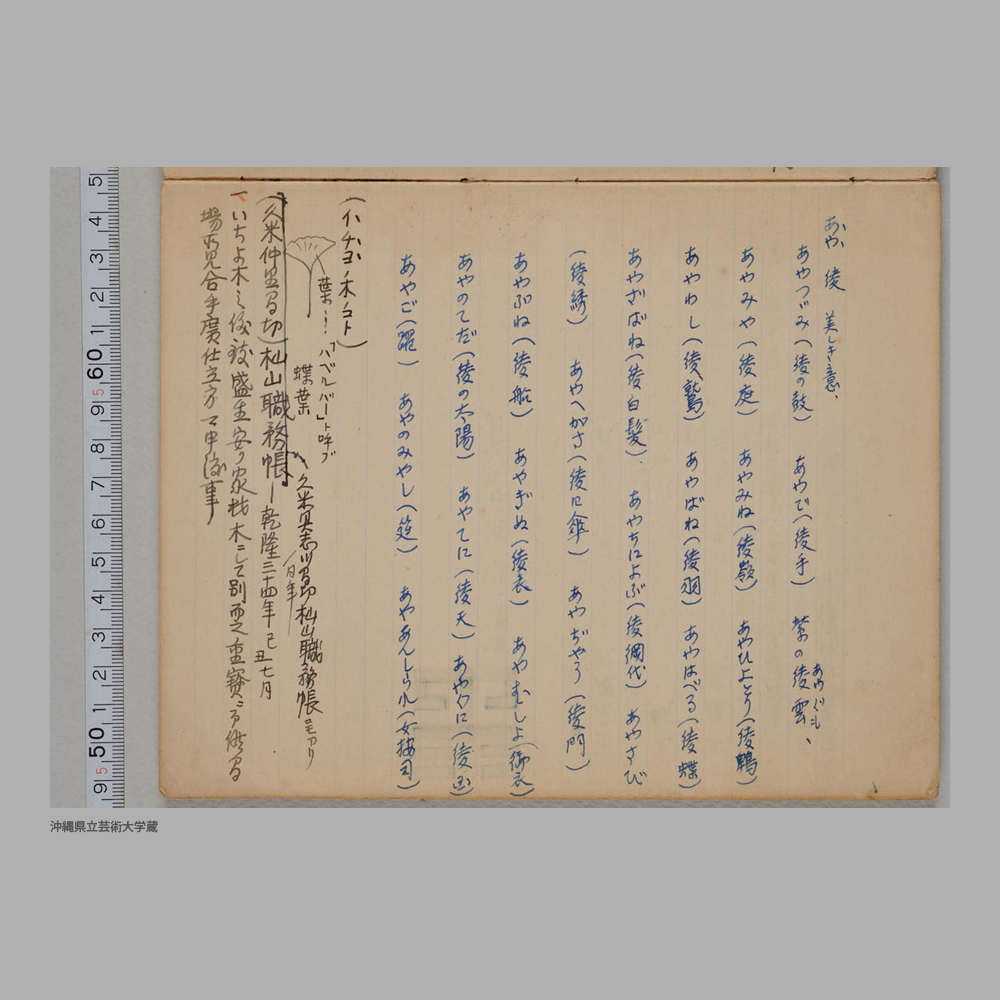 あや 綾 美しき意、
あやつゞみ(綾の鼓) あやで(綾手) 紫の綾雲、
あやぐも
あやみや(綾庭) あやみね(綾嶺) あやひよどり(綾鵯)
あやわし(綾鷲) あやばね(綾羽) あやはべる(綾蝶)
あやざばね(綾白髪) あやちによぶ(綾網代) あやさび
(綾錆) あやへがさ(綾日傘) あやぢやう(綾門)
あやぶね(綾船) あやぎぬ(綾衣) あやむしよ(御衣)
あやのてだ(綾の太陽) あやてに(綾天) あやくに(綾国)
あやご(躍) あやのみやし(筵) あやあんしられ(女按司)
(イチヨノ木ノコト)
葉ハー!「ハベルバー」ト呼ブ
蝶葉
久米具志川間切杣山職務帳ニモアリ
同年
(久米仲里間切)杣山職務帳ー乾隆三十四年己丑七月
一いちよ木之儀 盛生安ク家材木ニして別而之重寶ニ方候間
場所見合手廣仕立方可申渡事
5 4 3 2 1 60 9 8 7 6 5 4 3 2 1 50 9
沖縄県立芸術大学蔵